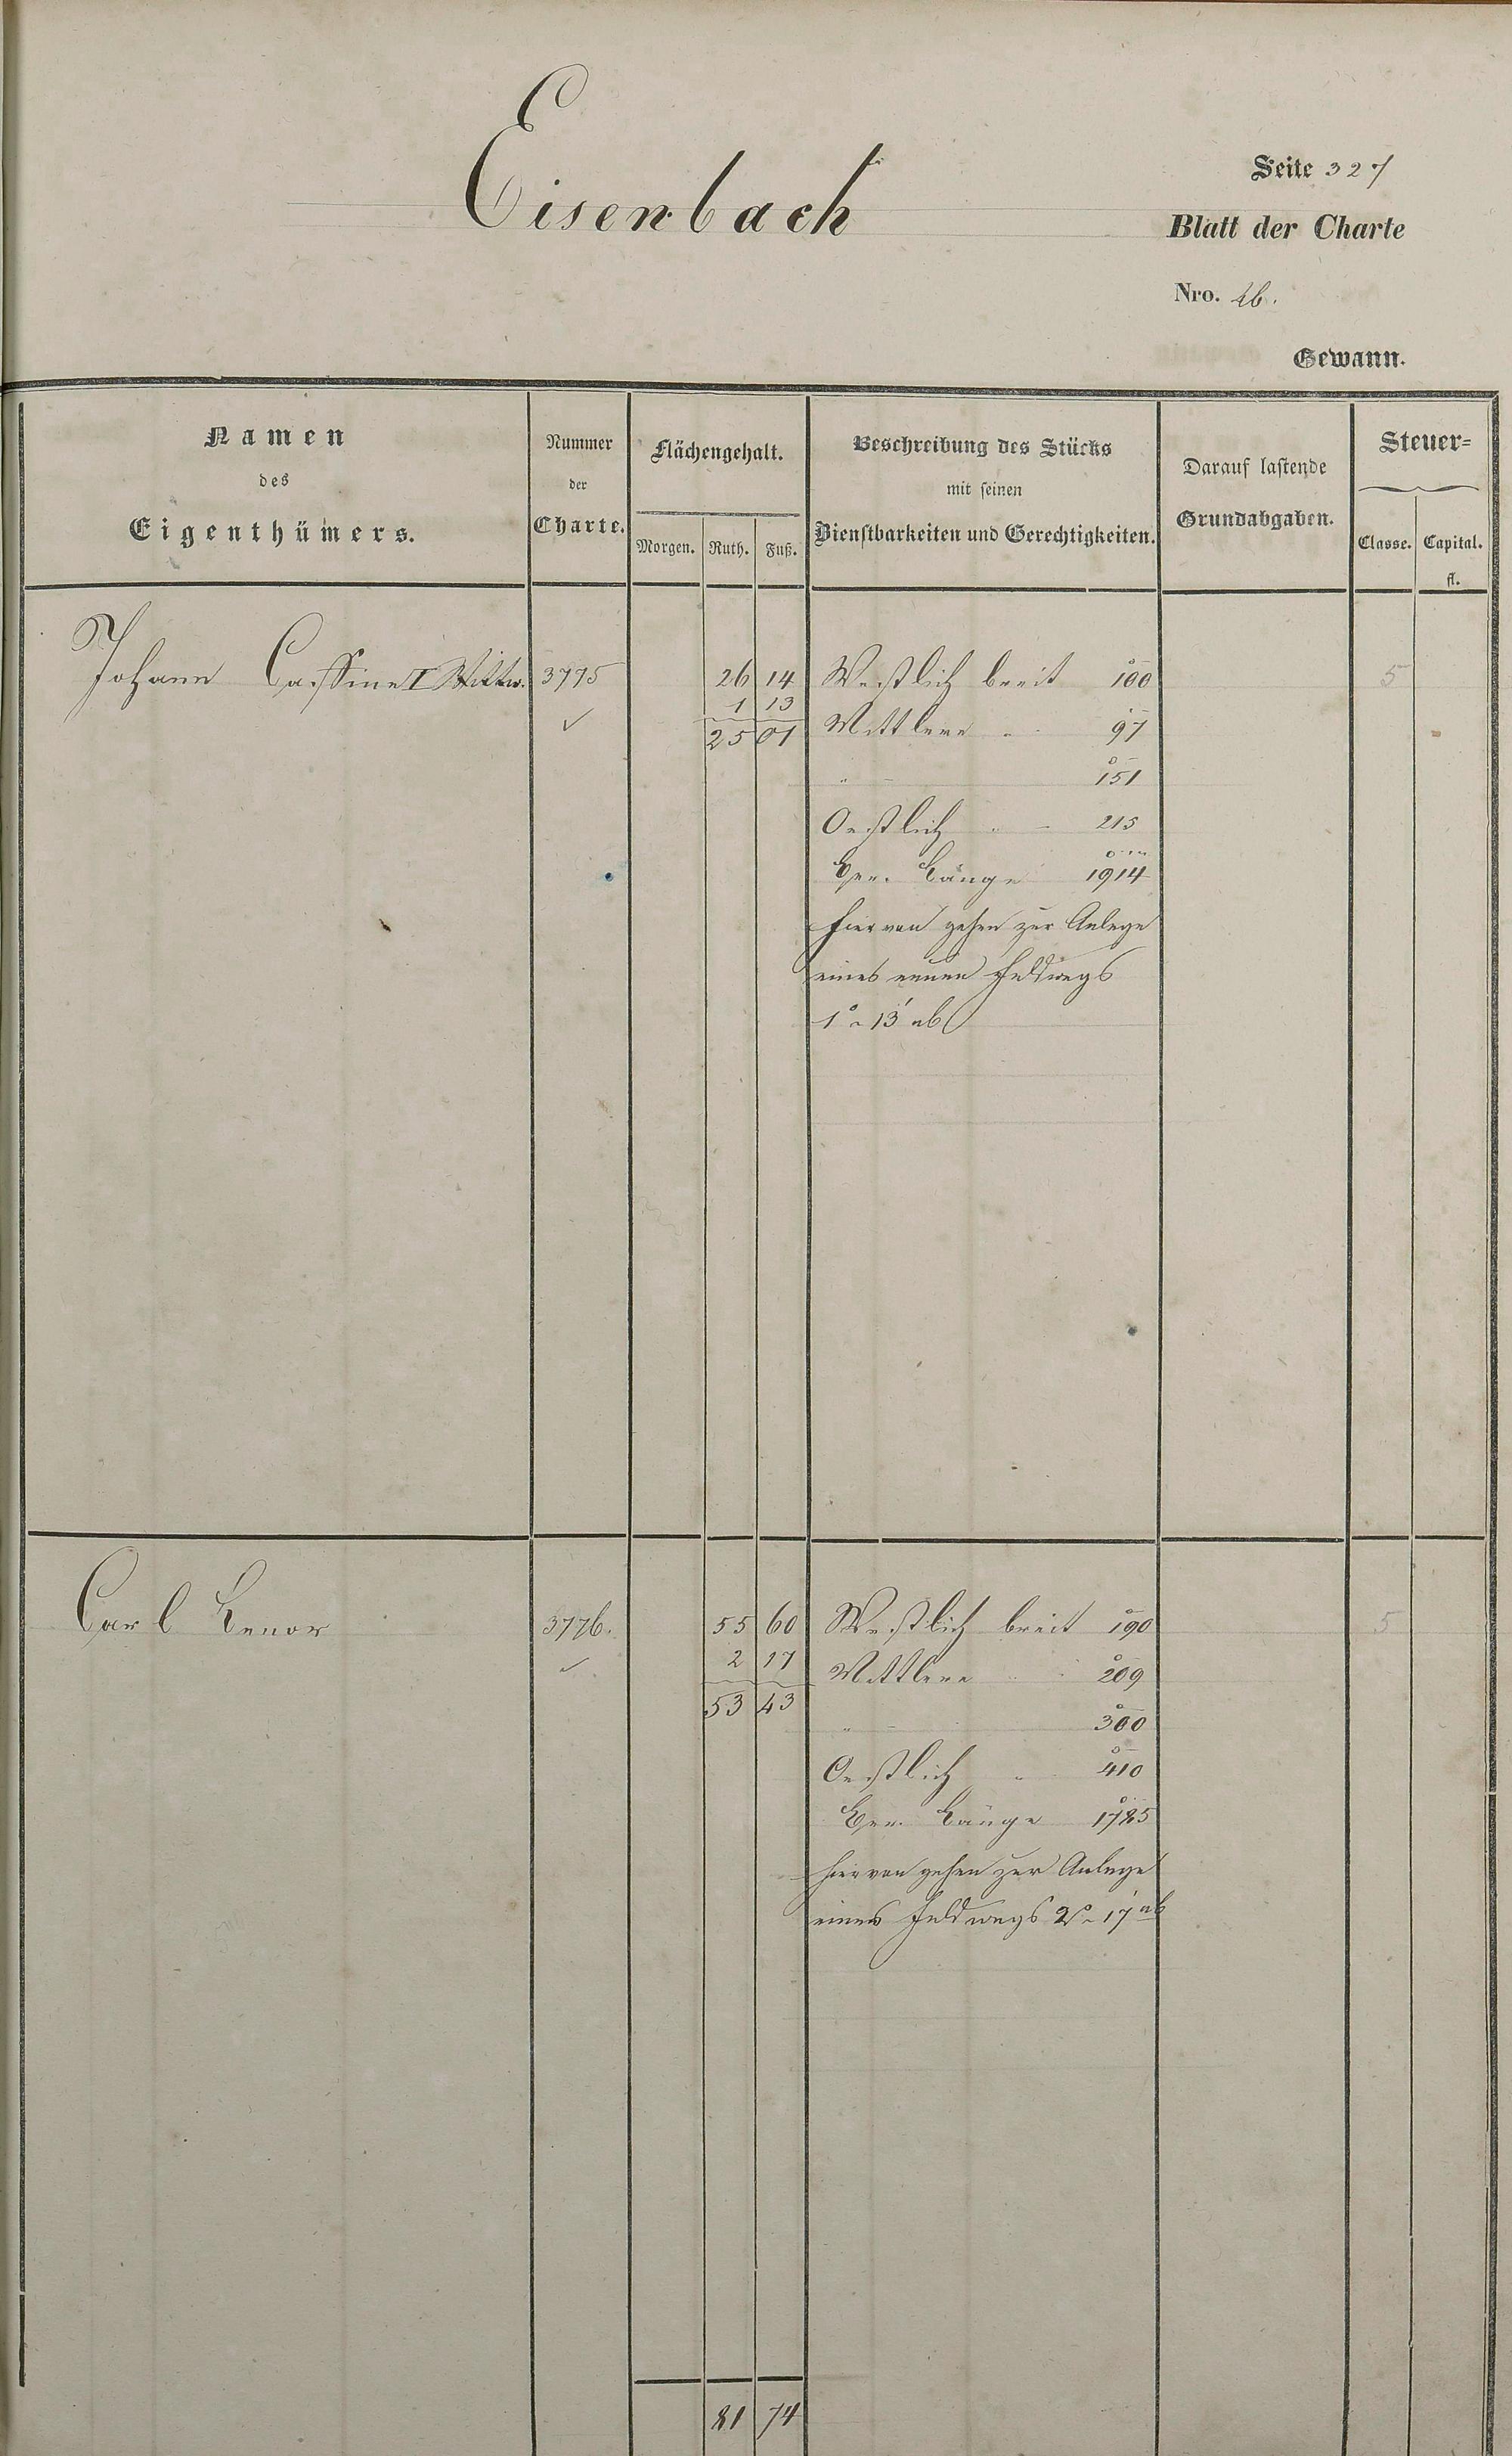 Eisenbach
Seite 327
Blatt der Charte
Nro. 26.
Gewann.
Namen
des
Eigenthümers.
Nummer
der
Charte.
Flächengehalt.
Morgen. Ruth. Fuß.
Beschreibung des Stücks
mit seinen
Dienstbarkeiten und Gerechtigkeiten.
Darauf lastende
Grundabgaben.
Steuer=
Classe. Capital.
fl.
Johann Cassine I Wittw. 3775 26 14 Westlich breit 100 5
1 13
✓ 25 01 Mittlere " 97
" 151
Oestlich " 215
Länge 1914
hiervon gehen zur Anlage
eines neuen Feldwegs
1° 13' ab
Carl 3776. 55 60 Westlich breit 190 5
✓ 2 17 Mittlere " 209
53 43
" 300
Oestlich " 410
Länge 1785
hiervon gehen zur Anlage
eines Feldwegs 2° 17' ab
81 74